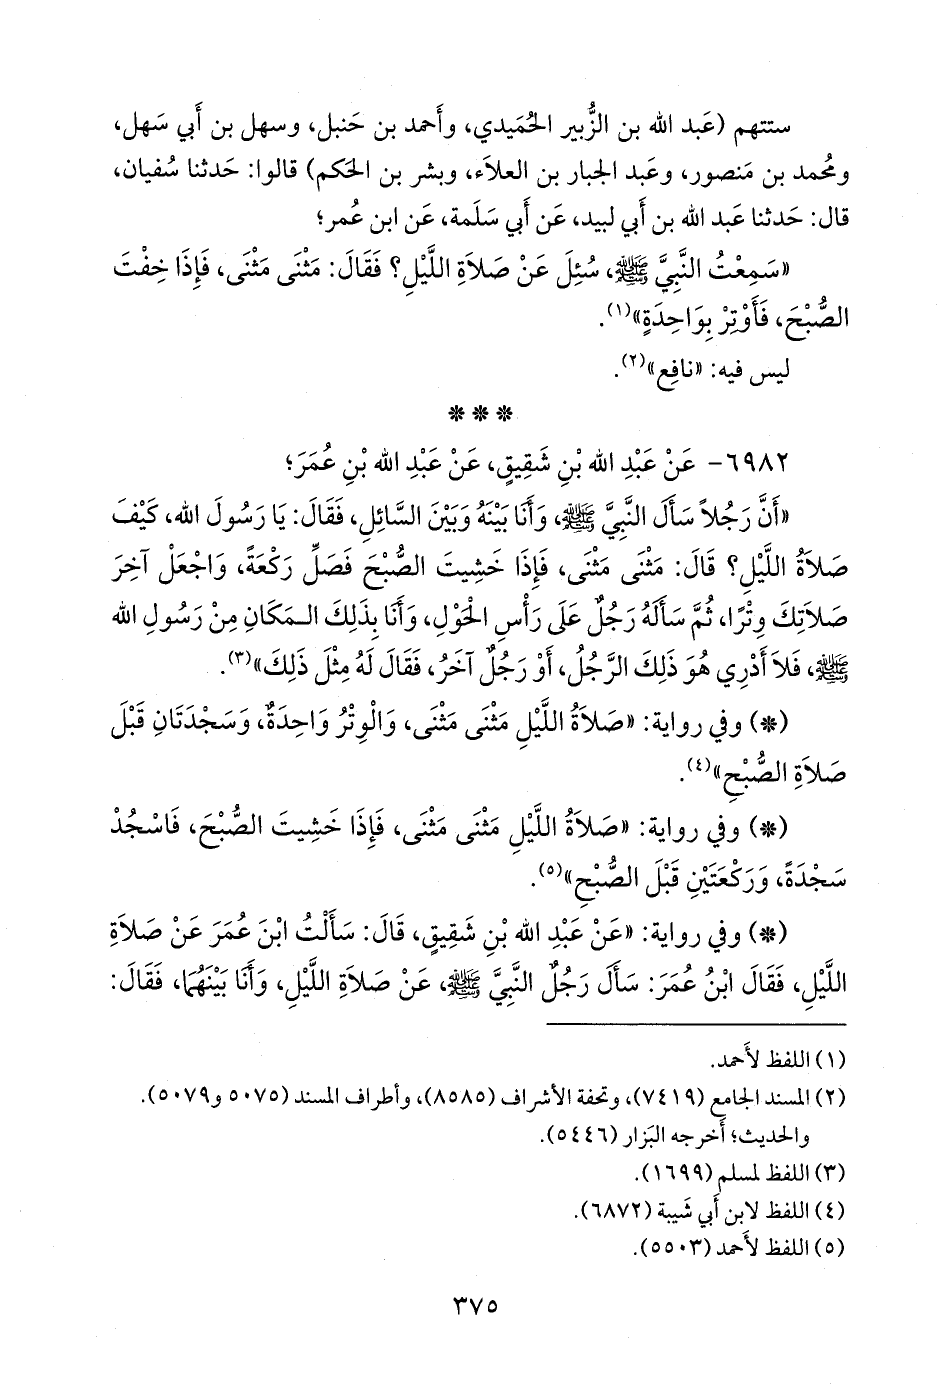 ستتهم (عَبد الله بن الزُّبير الحُمَيدي، وأَحمد بن حَنبل، وسهل بن أَبي سَهل،
ومُحمد بن مَنصور، وعَبد الجبار بن العلاَء، وبشر بن الحَكم) قالوا: حَدثنا سُفيان،
قال: حَدثنا عَبد الله بن أَبي لبيد، عَن أَبي سَلَمة، عَن ابن عُمر؛
«سَمِعْتُ النَّبِيَّ ﷺ، سُئِلَ عَنْ صَلاَةِ اللَّيْلِ؟ فَقَالَ: مَثْنَى مَثْنَى، فَإِذَا خِفْتَ
الصُّبْحَ، فَأَوْتِرْ بِوَاحِدَةٍ»(١).
ليس فيه: «نافِع»(٢).
***
٦٩٨٢- عَنْ عَبْدِ الله بْنِ شَقِيقٍ، عَنْ عَبْدِ الله بْنِ عُمَرَ؛
«أَنَّ رَجُلاً سَأَلَ النَّبِيَّ ﷺ، وَأَنَا بَيْنَهُ وَبَيْنَ السَّائِلِ، فَقَالَ: يَا رَسُولَ الله، كَيْفَ
صَلاَةُ اللَّيْلِ؟ قَالَ: مَثْنَى مَثْنَى، فَإِذَا خَشِيتَ الصُّبْحَ فَصَلِّ رَكْعَةً، وَاجْعَلْ آخِرَ
صَلاَتِكَ وِتْرًا، ثُمَّ سَأَلَهُ رَجُلٌ عَلَى رَأْسِ الْحَوْلِ، وَأَنَا بِذَلِكَ الـمَكَانِ مِنْ رَسُولِ الله
ﷺ، فَلاَ أَدْرِي هُوَ ذَلِكَ الرَّجُلُ، أَوْ رَجُلٌ آخَرُ، فَقَالَ لَهُ مِثْلَ ذَلِكَ»(٣).
(*) وفي رواية: «صَلاَةُ اللَّيْلِ مَثْنَى مَثْنَى، وَالْوِتْرُ وَاحِدَةٌ، وَسَجْدَتَانِ قَبْلَ
صَلاَةِ الصُّبْحِ»(٤).
(*) وفي رواية: «صَلاَةُ اللَّيْلِ مَثْنَى مَثْنَى، فَإِذَا خَشِيتَ الصُّبْحَ، فَاسْجُدْ
سَجْدَةً، وَرَكْعَتَيْنِ قَبْلَ الصُّبْحِ»(٥).
(*) وفي رواية: «عَنْ عَبْدِ الله بْنِ شَقِيقٍ، قَالَ: سَأَلْتُ ابْنَ عُمَرَ عَنْ صَلاَةِ
اللَّيْلِ، فَقَالَ ابْنُ عُمَرَ: سَأَلَ رَجُلٌ النَّبِيَّ ﷺ، عَنْ صَلاَةِ اللَّيْلِ، وَأَنَا بَيْنَهُمَا، فَقَالَ:
(١) اللفظ لأَحمد.
(٢) المسند الجامع (٧٤١٩)، وتحفة الأشراف (٨٥٨٥)، وأطراف المسند (٥٠٧٥ و٥٠٧٩).
والحديث؛ أخرجه البَزار (٥٤٤٦).
(٣) اللفظ لمسلم (١٦٩٩).
(٤) اللفظ لابن أَبي شَيبة (٦٨٧٢).
(٥) اللفظ لأَحمد (٥٥٠٣).
٣٧٥